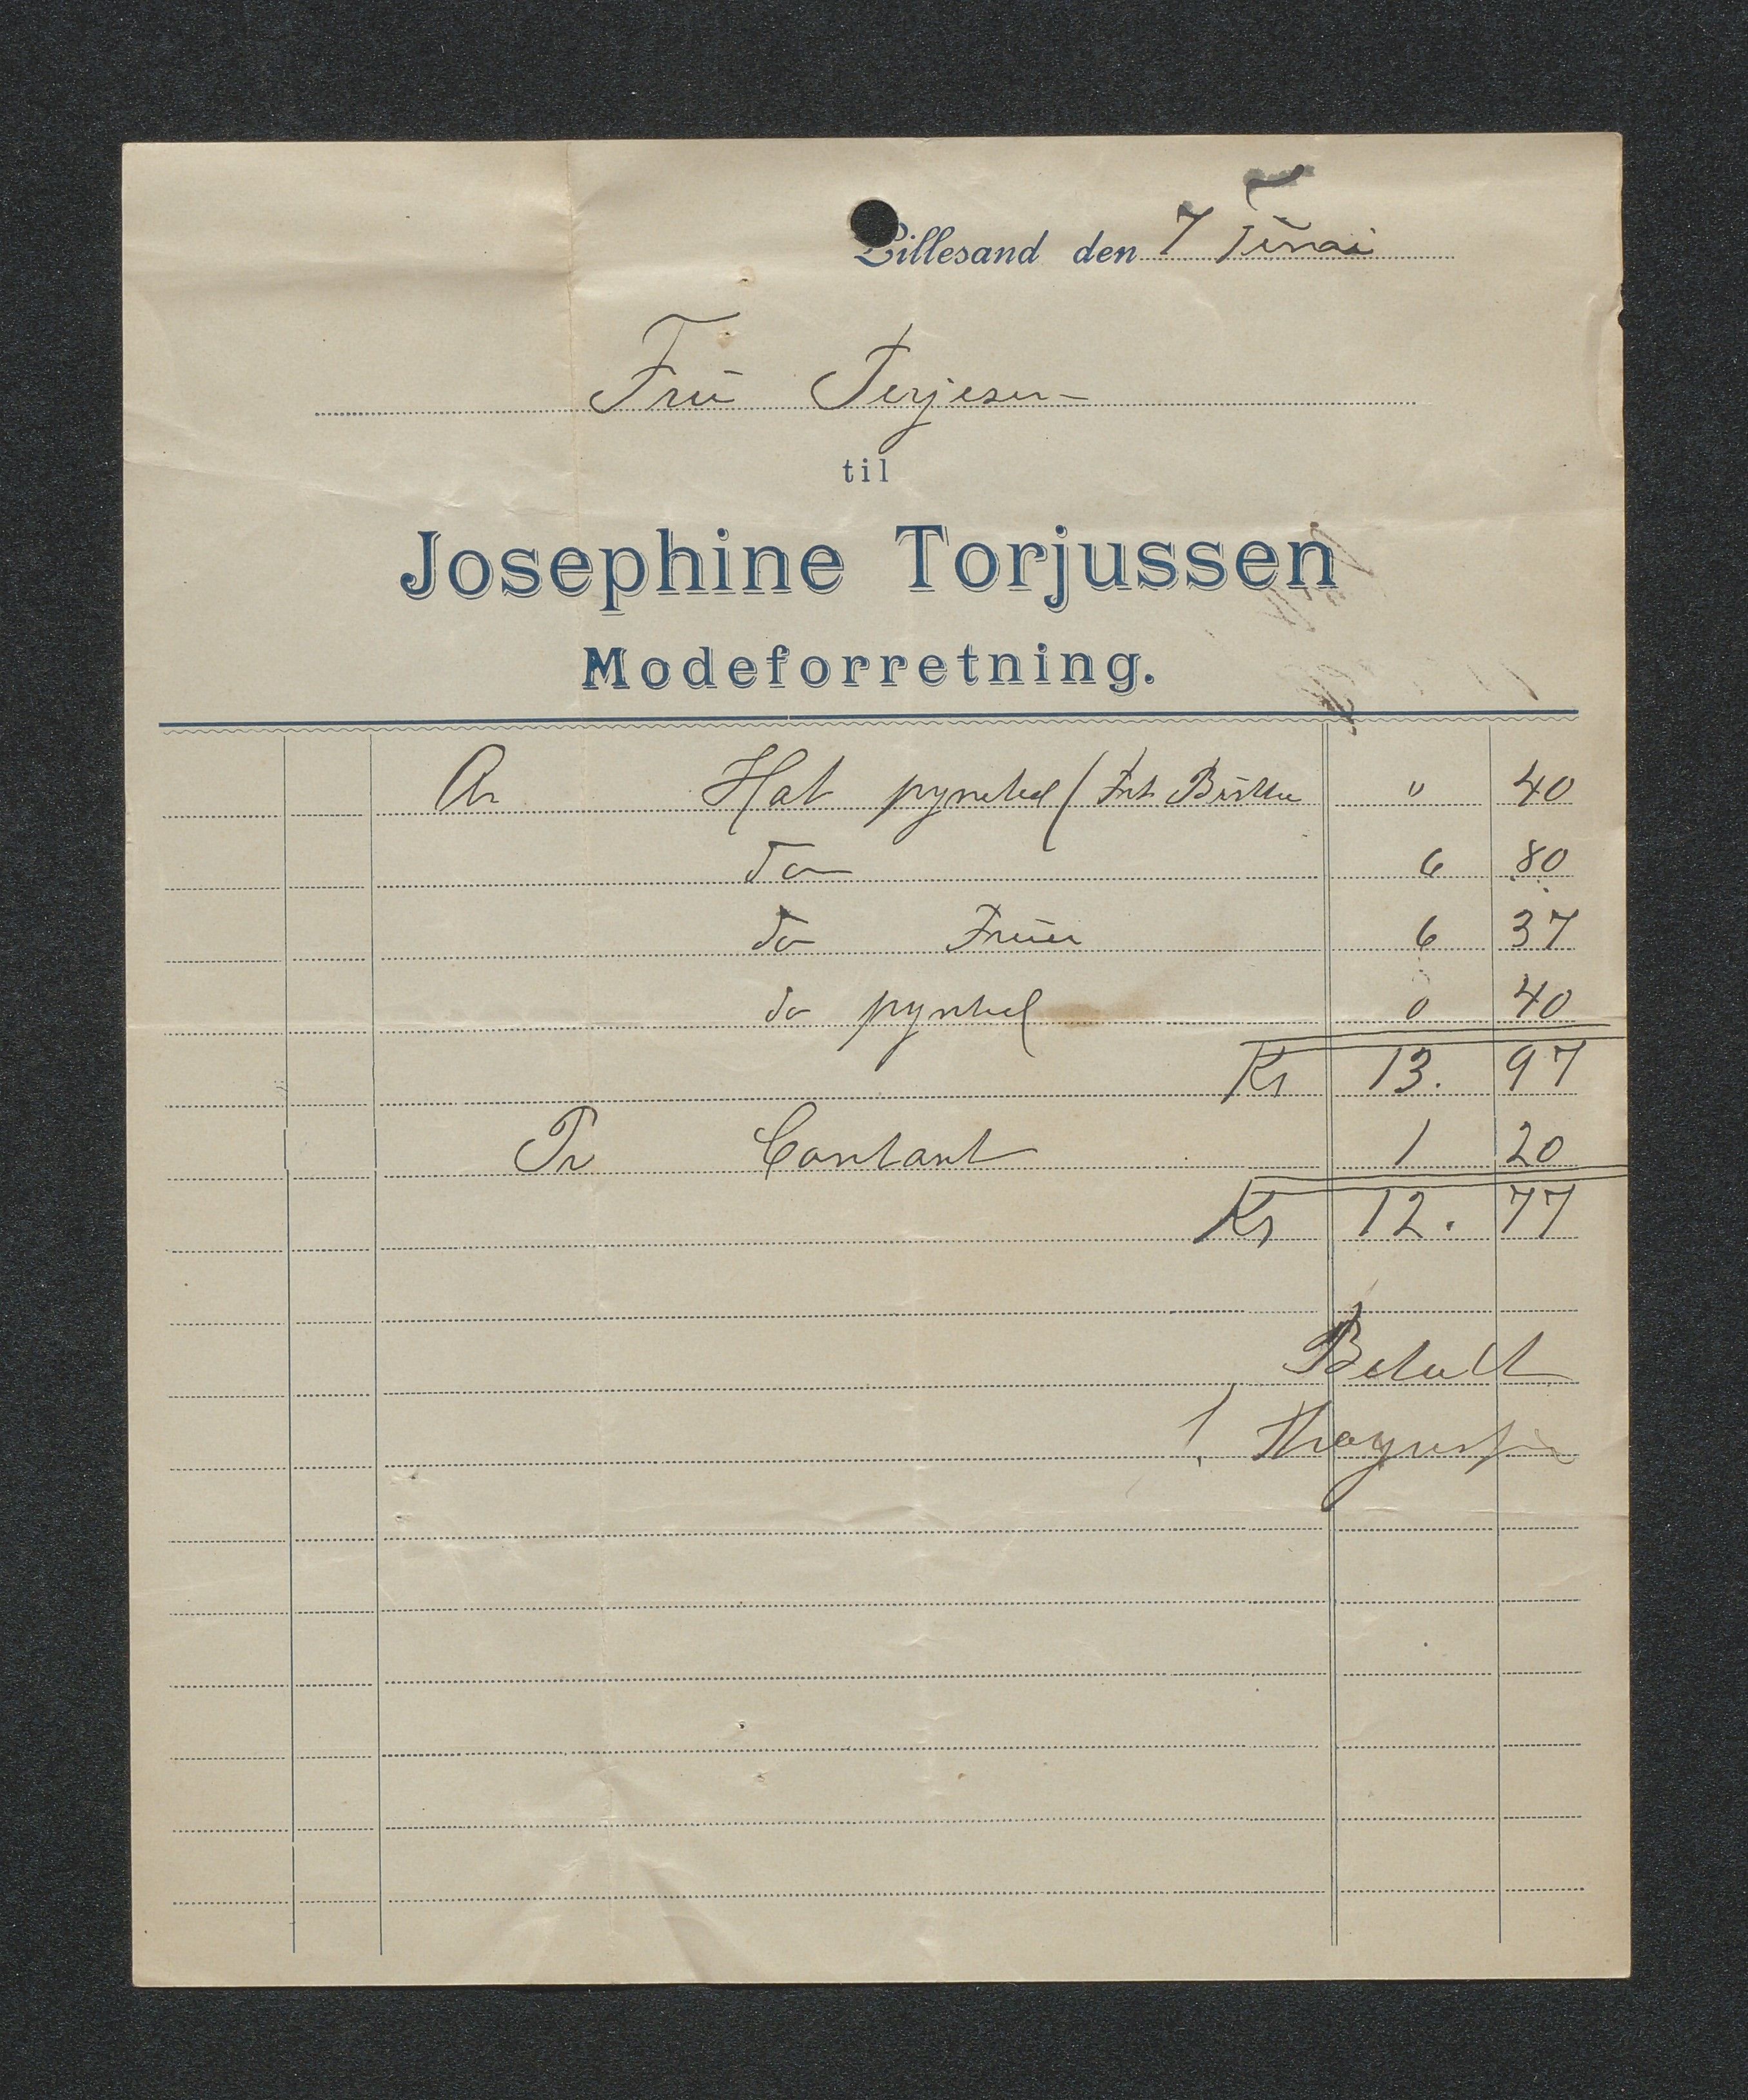 Lillesand den 7 Junai
Frü Terjesen
til
Josephine Torjussen
Modeforretning.
An Hat pyntet ( Frk " 40
do 6 80
do Früen 6 37
do pyntet 0 40
Kr 13. 97
Pr Contant 1 20
Kr 12. 77
Betalt